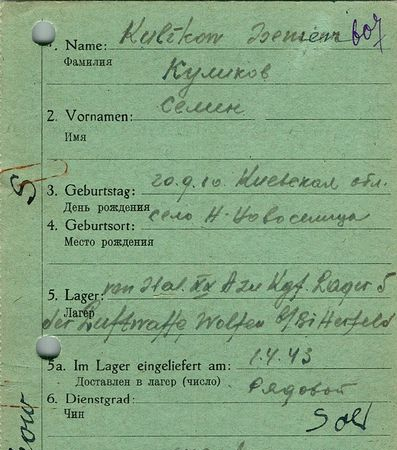 1. Name: Kulikow Semen 607
Фамилия Куликов
2. Vornamen: Семен
Имя
3. Geburtstag: 20.9.10. Киевская обл.
День рождения
4. Geburtsort: село Н-Новоселица
Место рождения
5. Lager: von Stal. XX A zu Kgf. Lager 5
Лагерь
der Luftwaffe Wolfen b/Bitterfeld
5a. Im Lager eingeliefert am: 1.4.43
Доставлен в лагер (число)
6. Dienstgrad: Рядовой
Чин Sold